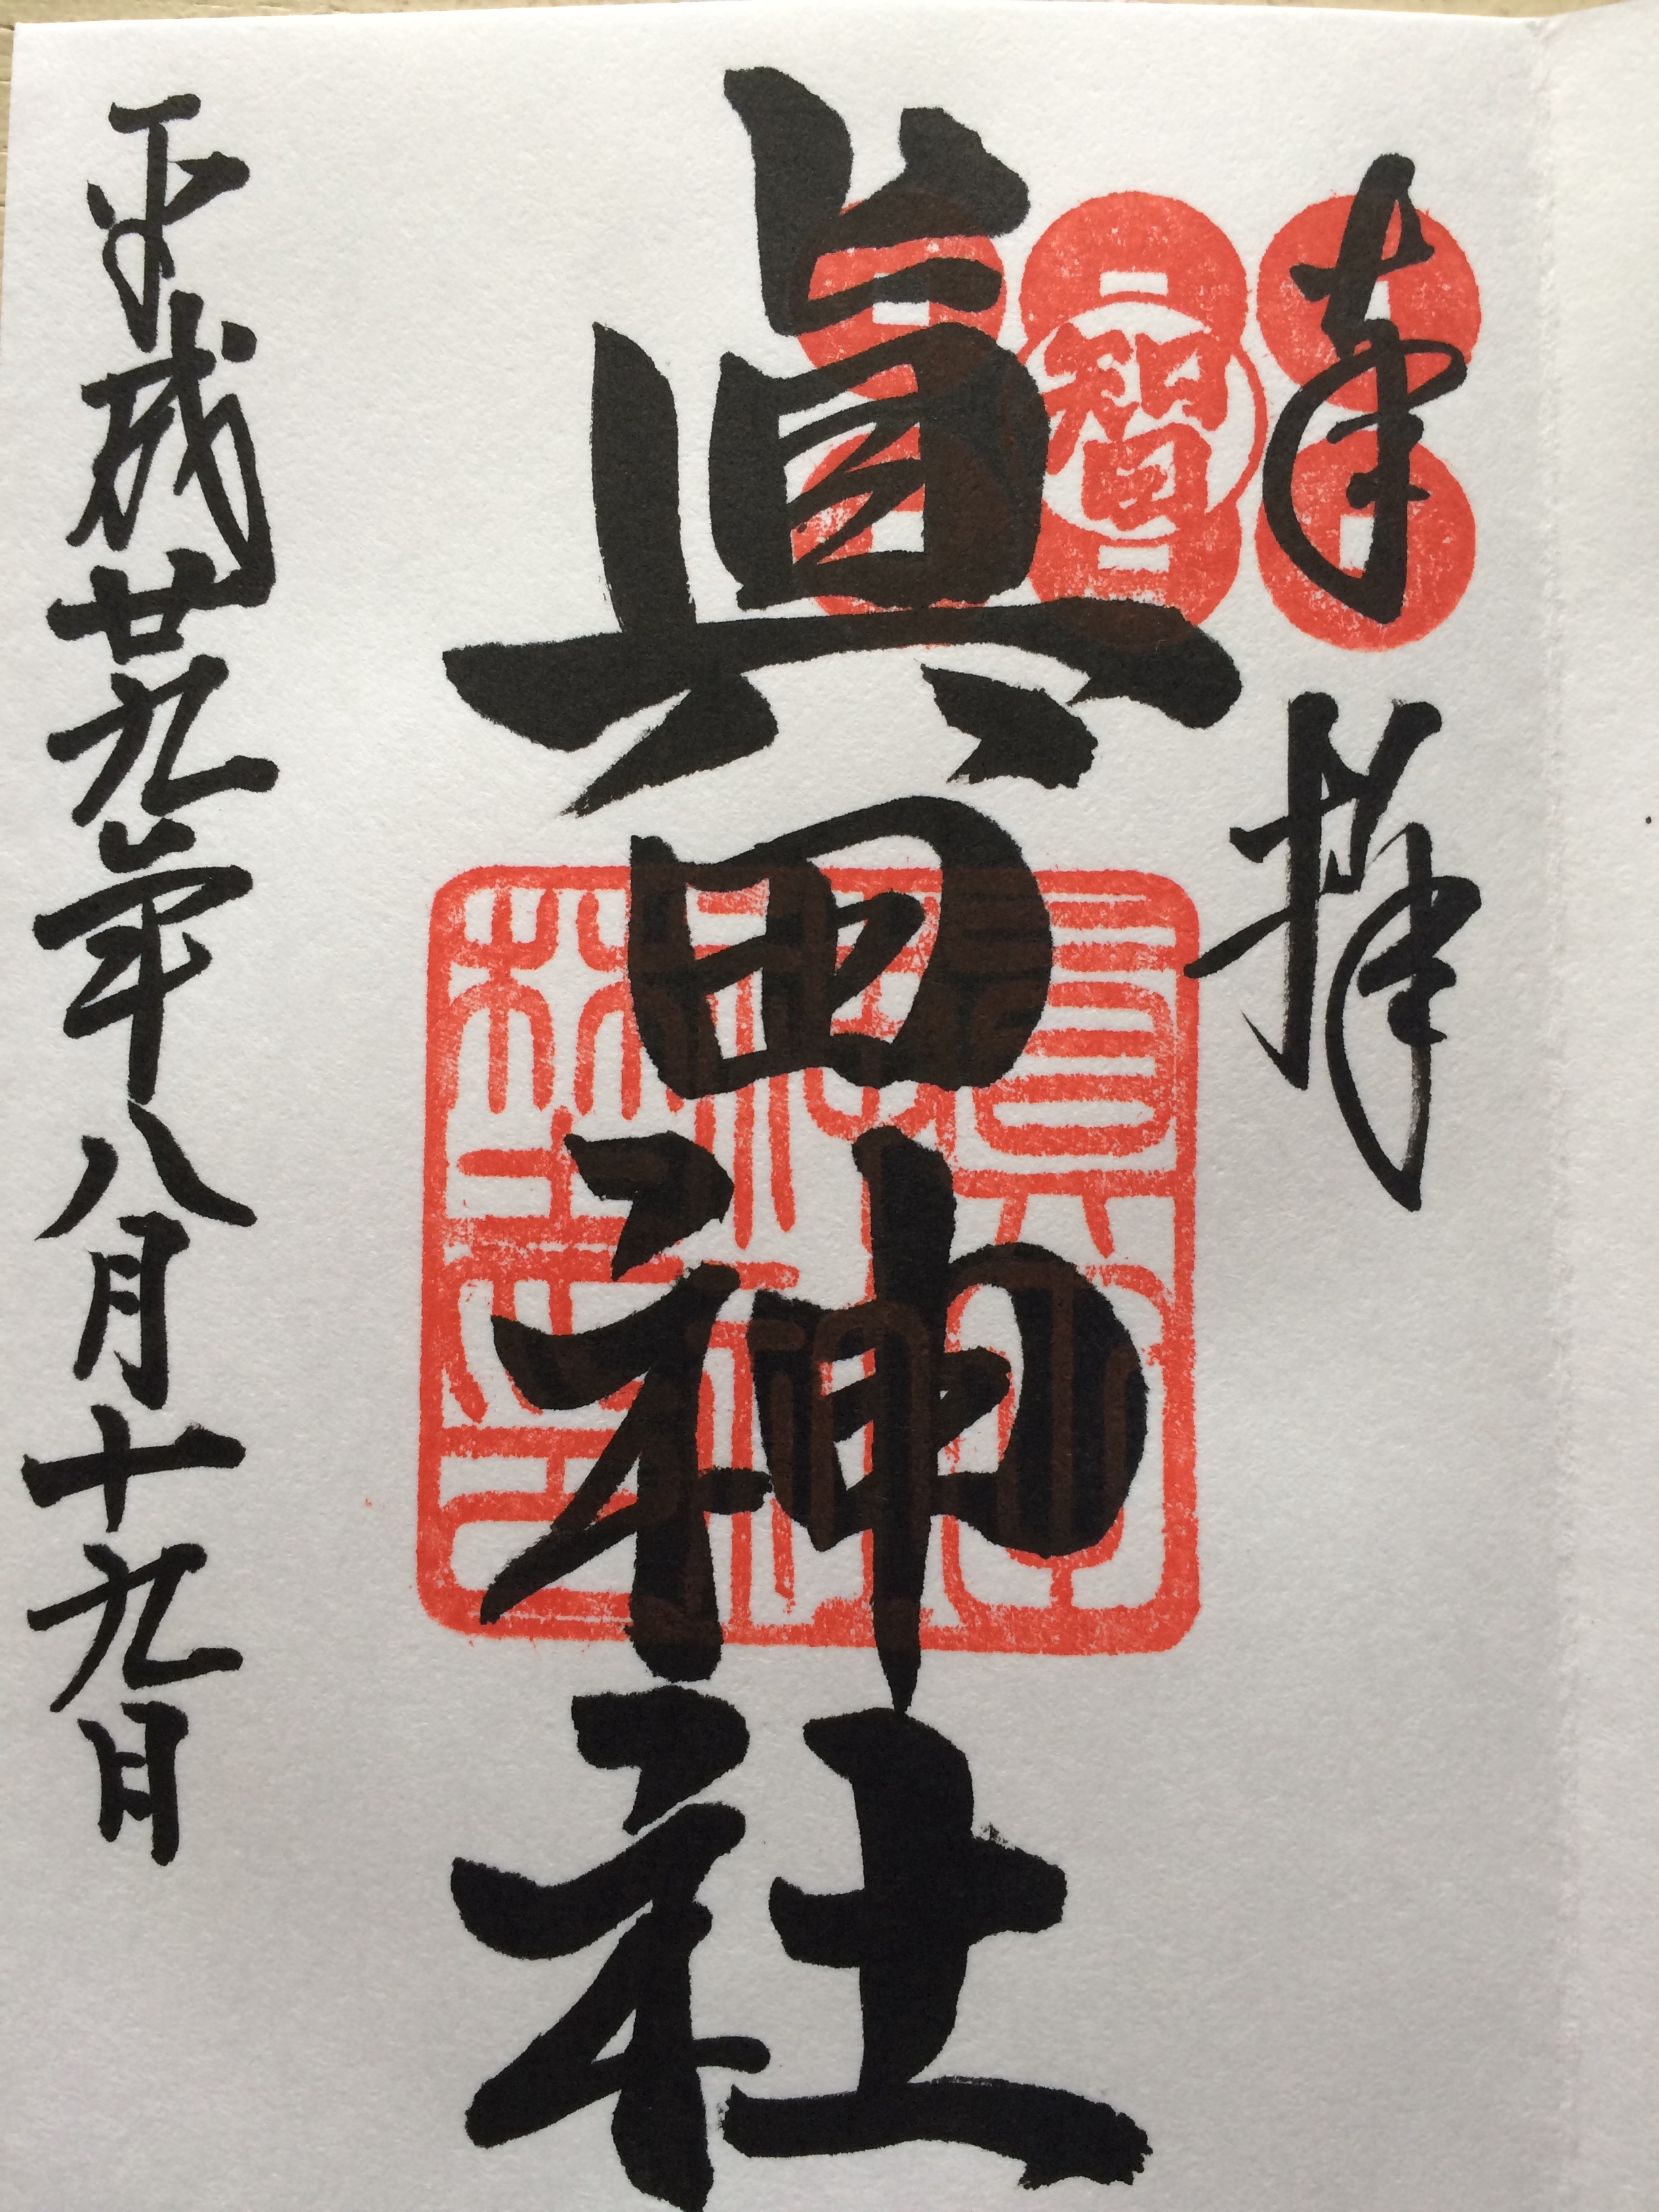 奉拝
智
眞田神社
平成廿九年八月十九日